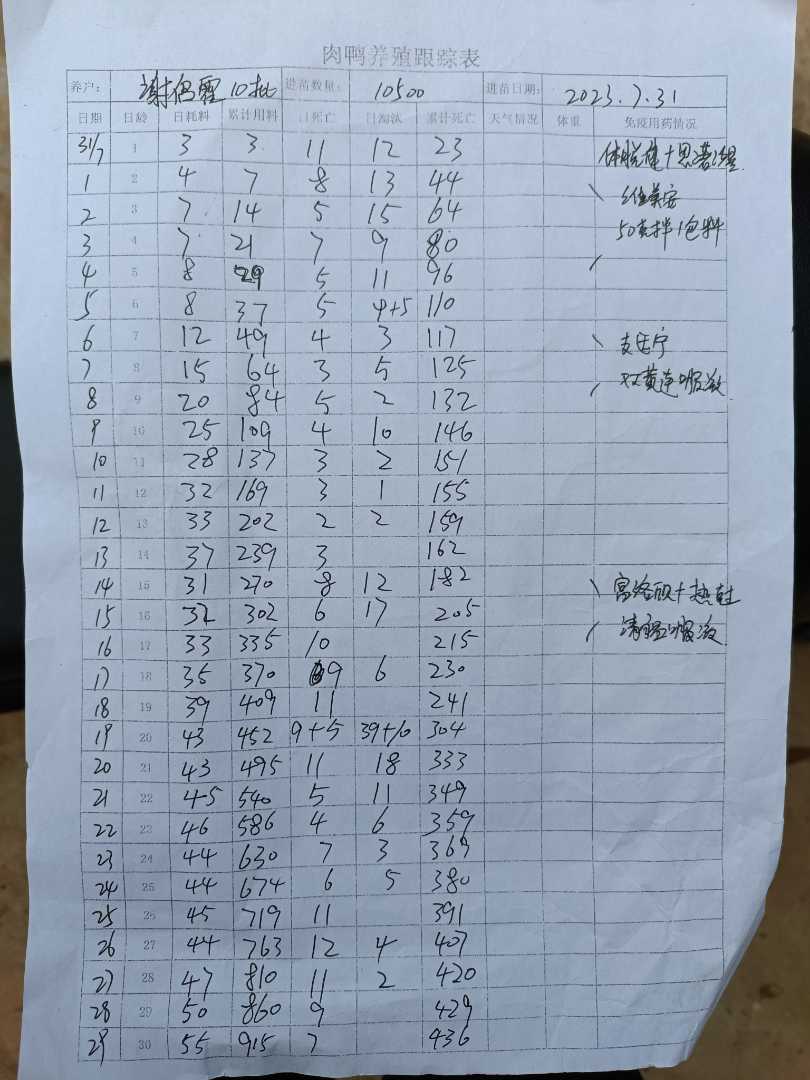 肉鸭养殖跟踪表
养户： 谢偶霞 10批 进苗数量： 10500 进苗日期： 2023.7.31
日期 日龄 日耗料 累计用料 日死亡 日淘汰 累计死亡 天气情况 体重 免疫用药情况
31/7 1 3 3 11 12 23
1 2 4 7 8 13 44
2 3 7 14 5 15 64 50克拌1包料
3 4 7 21 7 9 80
4 5 8 29 5 11 96
5 6 8 37 5 4+5 110
6 7 12 49 4 3 117
7 8 15 64 3 5 125 双黄连口服液
8 9 20 84 5 2 132
9 10 25 109 4 10 146
10 11 28 137 3 2 151
11 12 32 169 3 1 155
12 13 33 202 2 2 159
13 14 37 239 3 162
14 15 31 270 8 12 182
15 16 32 302 6 17 205 口服液
16 17 33 335 10 215
17 18 35 370 9 6 230
18 19 39 409 11 241
19 20 43 452 9+5 39+10 304
20 21 43 495 11 18 333
21 22 45 540 5 11 349
22 23 46 586 4 6 359
23 24 44 630 7 3 369
24 25 44 674 6 5 380
25 26 45 719 11 391
26 27 44 763 12 4 407
27 28 47 810 11 2 420
28 29 50 860 9 429
29 30 55 915 7 436